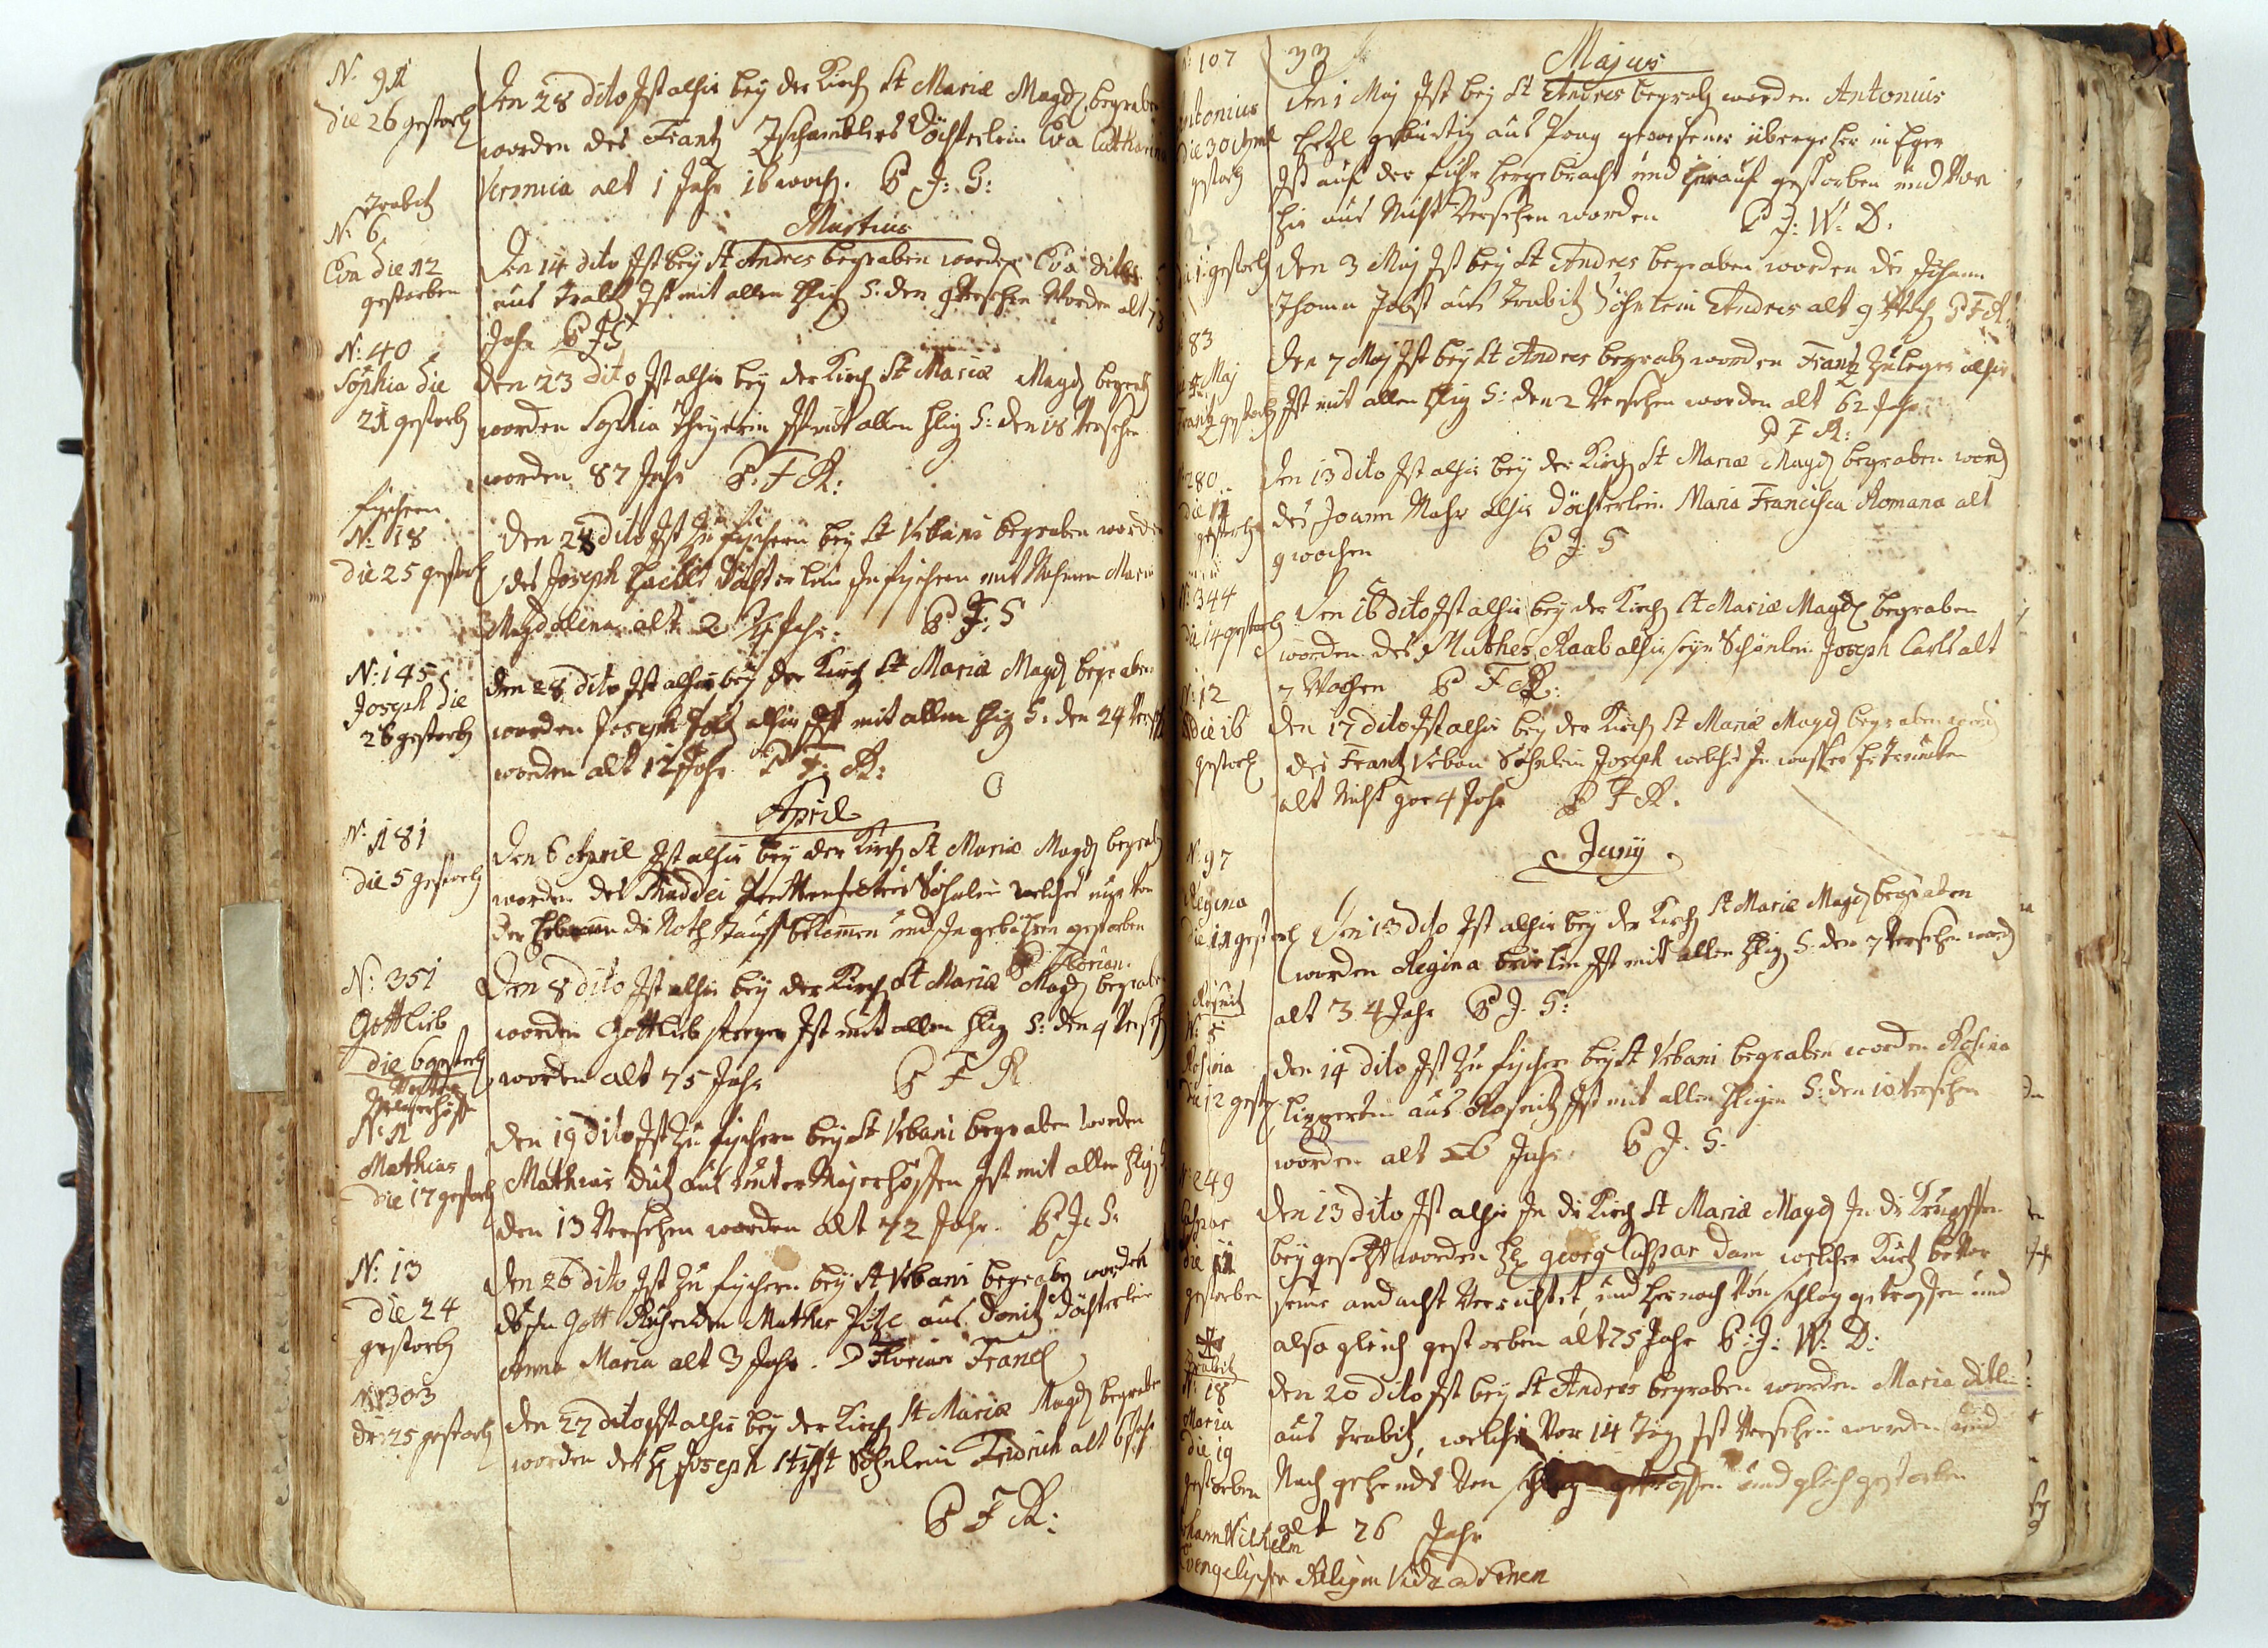 N. 91
die 26 gestorb
Den 28 dito Ist alhir bey der Kirch St Mariæ Magd begraben
worden des Frantz Tschamblers Döchterlein Eva Catharina
Veronica alt 1 Jahr 16 woch. P J: S:
Trabitz
N. 6
Eva die 12
gestorben
Martius
Den 14 dito Ist bey St Andres begraben worden Eva
aus Ist mit allen Hlig S: den 9 Versehen Worden alt 73
Jahr P J S
N: 40
Sophia die
21 gestorb
Den 23 dito Ist alhir bey der Kirch St Mariæ Magd begrab
worden Sophia Ist mit allen Hlig S: den 18 Versehen
worden 87 Jahr P. F R:
fischern
N. 18
die 25 gestorb
Den 28 dito Ist Zu fischern bey St Urbani begraben worden
des Joseph Döchterlein In fischern mit Nahmen Maria
Magdalena alt 2 Jahr: P J: S
N: 145
Joseph die
26 gestorb
Den 28 dito Ist alhir bey der Kirch St Mariæ Magd begraben
worden Joseph alhir Ist mit allen Hlig S: den 24 Versehn
worden alt 12 Jahr P F: R:
April
N. 181
die 5 gestorb
Den 6 April Ist alhir bey der Kirch St Mariæ Magd begrab
worden des Thaddei Söhnlein welches nur von
der die Noth Tauff bekommen und In gebähren gestorben
P Florian.
N: 351
Gottlieb
die 6 gestorb
Den 8 dito Ist alhir bey der Kirch St Mariæ Magd begraben
worden Gottlieb Ist mit allen Hlig S: den 4 Verseh
worden alt 75 Jahr P F R
N. 11
Mathias
die 17 gestorb
Den 19 dito Ist Zu fischern bey St Urbani begraben worden
Mathias aus Unter Majerhöffen Ist mit allen Hlig S
den 13 Versehen worden alt 72 Jahr. P J: S:
N: 13
die 24
gestorb
Den 26 dito Ist Zu fischern bey St Urbani begraben worden
des In Gott Ruhenden Mathes aus Donitz Döchterlein
Anna Maria alt 3 Jahr. P Florian Franck
N. 303
die 25 gestorb
Den 27 dito Ist alhir bey der Kirch St Mariæ Magd begraben
worden des H Joseph Söhnlein Fridrich alt 6 Jahr
P F R:
N: 107
33
Majus
Antonius
die 30
gestorb
Den 1 Maj Ist bey St Andres begrab worden Antonius
gebürtig aus Prag gewesener in Eger
Ist auf der fuhr hergebracht und hierauf gestorben und Von
hir aus Nicht Versehen worden P J: W: D.
gestorb
Den 3 Maj Ist bey St Andres begraben worden des Johann
Thoma Jobst aus Trabitz Söhnlein Andres alt 9 Woch P F R:
83
4 Maj
Frantz gestorb
Den 7 Maj Ist bey St Andres begrab worden Frantz Zuleger alhir
Ist mit allen Hlig S: den 2 Versehen worden alt 62 Jahr
P F R:
280
die 11
gestorb
Den 13 dito Ist alhir bey der Kirch St Mariæ Magd begraben word
des Joann Mahr alhir Döchterlein Maria Francisca Romana alt
9 wochen P J: S
N: 344
die 14 gestorb
Den 16 dito Ist alhir bey der Kirch St Mariæ Magd begraben
worden des Mathes Raab alhir sein Söhnlein Joseph Carl alt
7 Wochen P F R:
N: 12
die 16
gestorb
Den 17 dito Ist alhir bey der Kirch St Mariæ Magd begraben word
des Frantz Urban Söhnlein Joseph welches In wasser Ertruncken
alt Nicht gar 4 Jahr P F R.
Juny
N. 97
Regina
die 11 gestorb
Den 13 dito Ist alhir bey der Kirch St Mariæ Magd begraben
worden Regina Ist mit allen Hlig S: den 7 Versehen word
alt 34 Jahr P J: S:
Rosnitz
N: 5
Rosina
die 12 gest
Den 14 dito Ist Zu fischern bey St Urbani begraben worden Rosina
Lippertin aus Rosnitz Ist mit allen Hligen S: den 10 Versehen
worden alt 56 Jahr P J. S.
N. 249
Caspar
die 11
gestorben
Den 13 dito Ist alhir In der Kirch St Mariæ Magd In die Krufften
bey gesetzt worden H Georg Caspar Dam, welcher Kurtz bevor
seine andacht Verrichtet, und hernach Von schlag getroffen und
also gleich gestorben alt 75 Jahr P: J: W: D:
Trabitz
N. 18
Maria
die 19
gestorben
Den 20 dito Ist bey St Andres begraben worden Maria
aus Trabitz, welche Vor 14 Tag Ist Versehen worden und
Nach gehends Von schlag getroffen und gleich gestorben
alt 26 Jahr
Johann Wilhelm
Evangelischer Religion Vide ad Finem